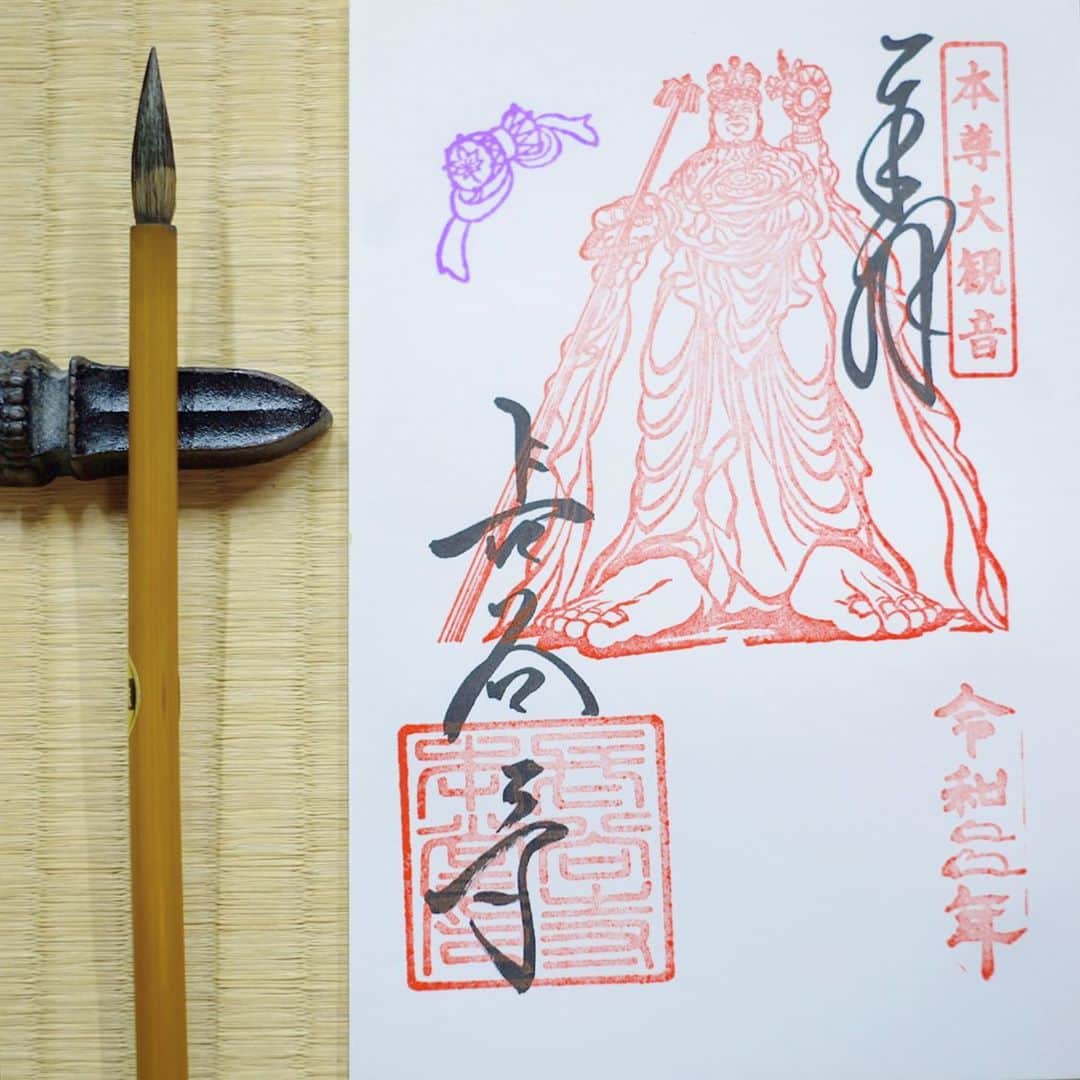 本尊大観音
奉拝
令和三年
長谷寺